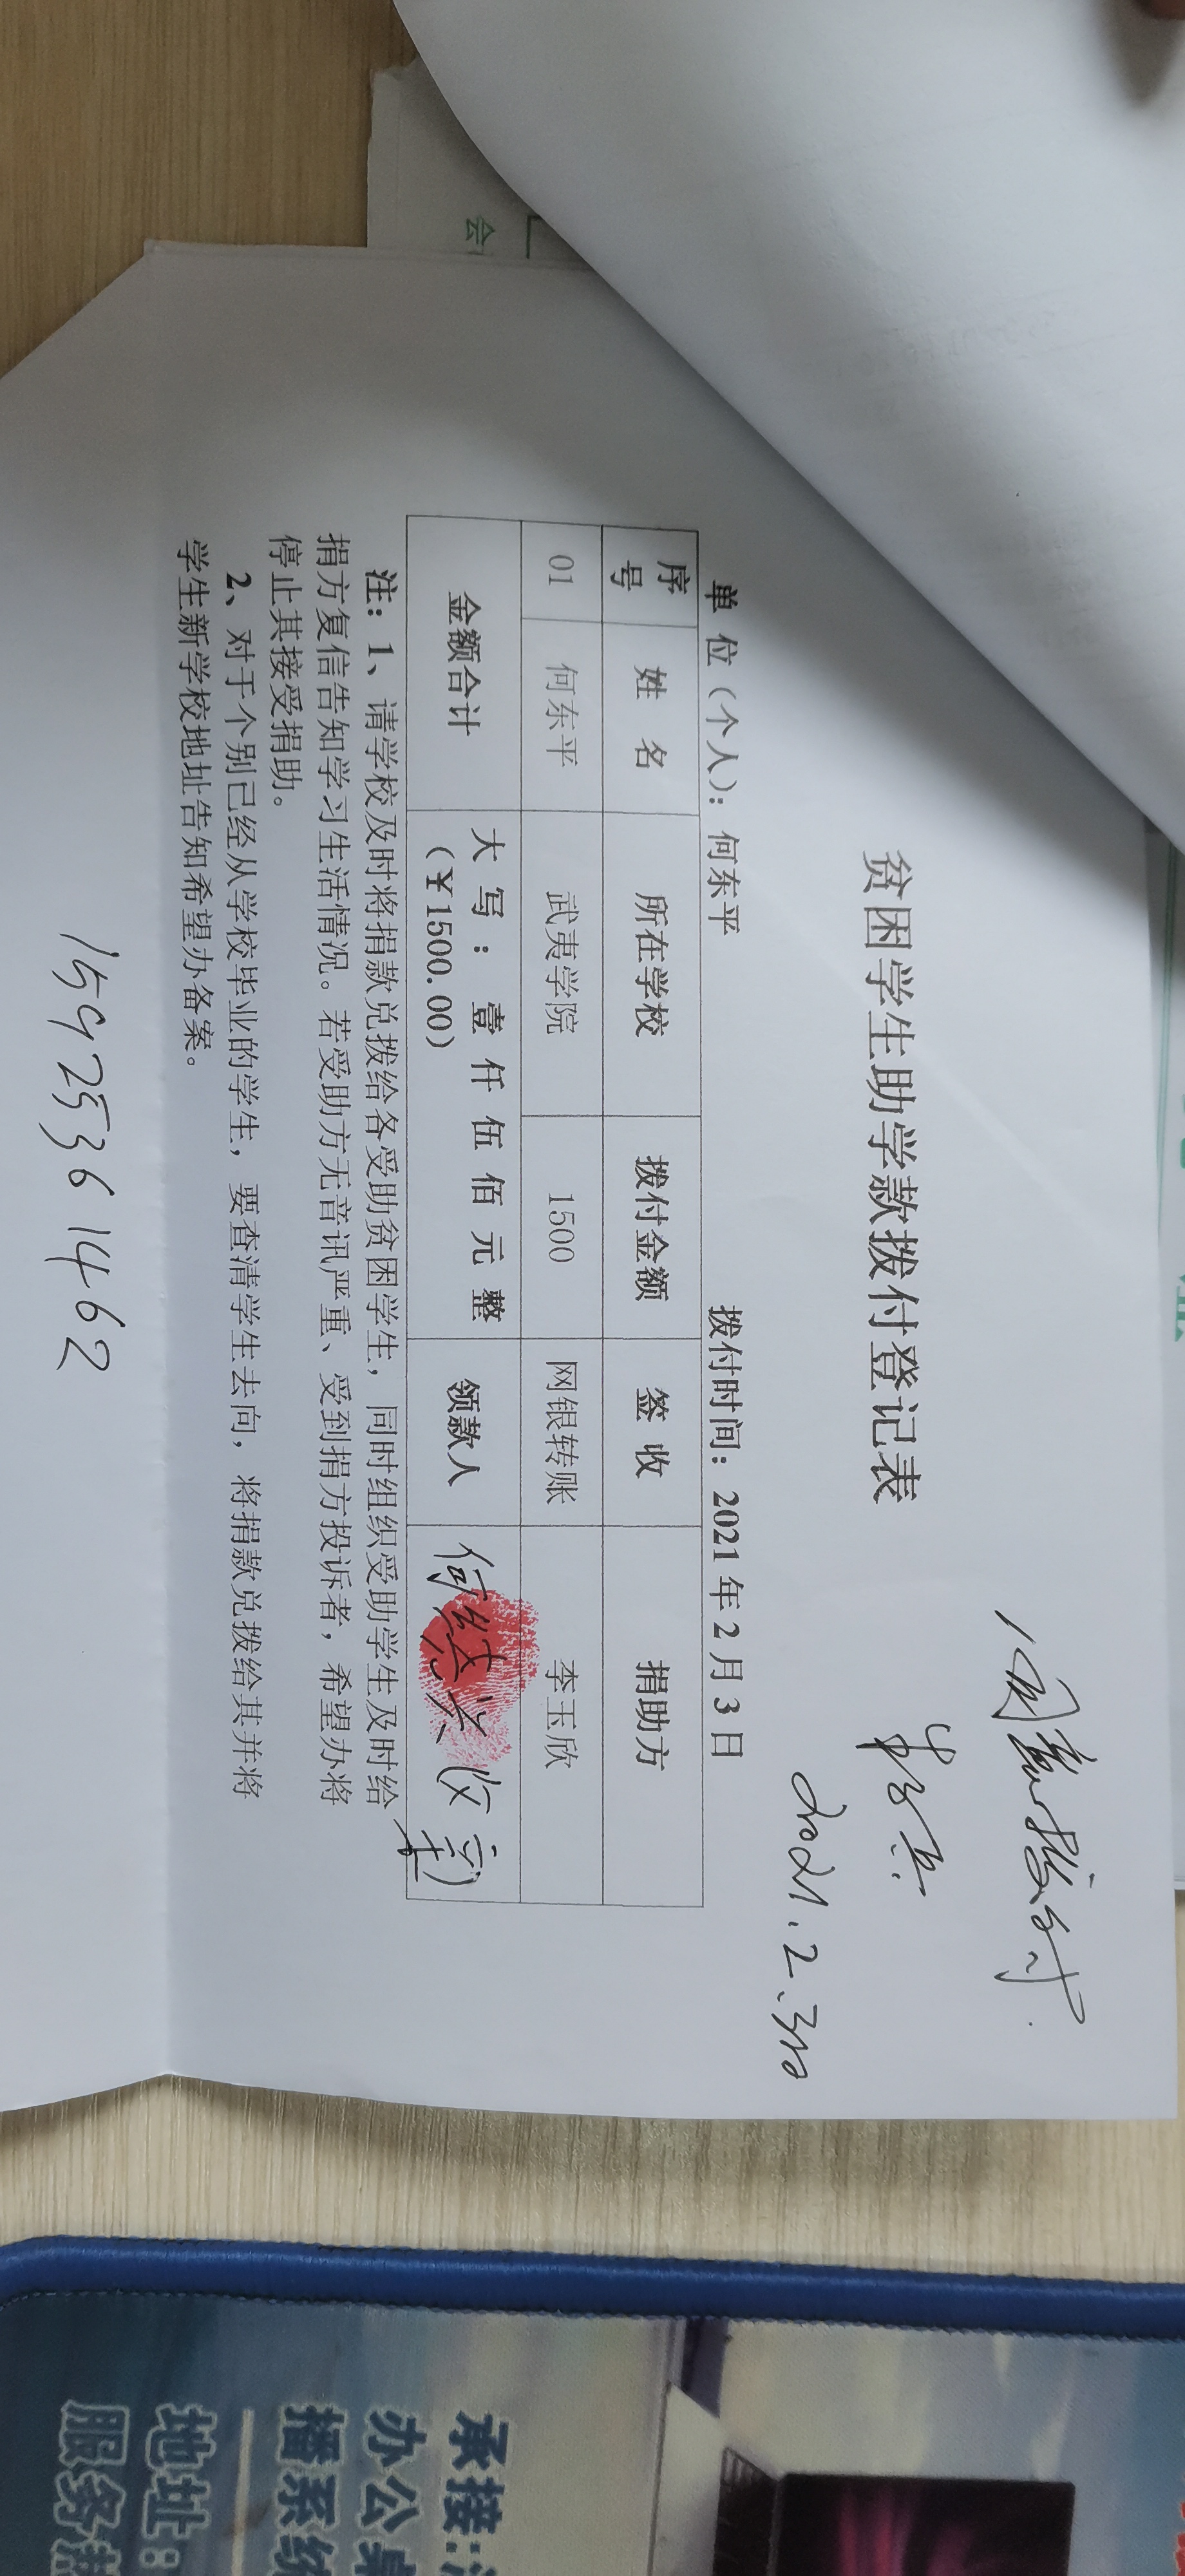 同意拨付.
2021.2.3日
贫困学生助学款拨付登记表
单 位（个人）：何东平 拨付时间：2021 年 2 月 3 日
序号 姓 名 所在学校 拨付金额 签 收 捐助方
01 何东平 武夷学院 1500 网银转账 李玉欣
金额合计 大写：壹仟伍佰元整 领款人
（¥1500.00）
注：1、请学校及时将捐款兑拨给各受助贫困学生，同时组织受助学生及时给
捐方复信告知学习生活情况。若受助方无音讯严重、受到捐方投诉者，希望办将
停止其接受捐助。
2、对于个别已经从学校毕业的学生，要查清学生去向，将捐款兑拨给其并将
学生新学校地址告知希望办备案。
15925361462
会
承接:
办公桌
播系统
地址：
服务热